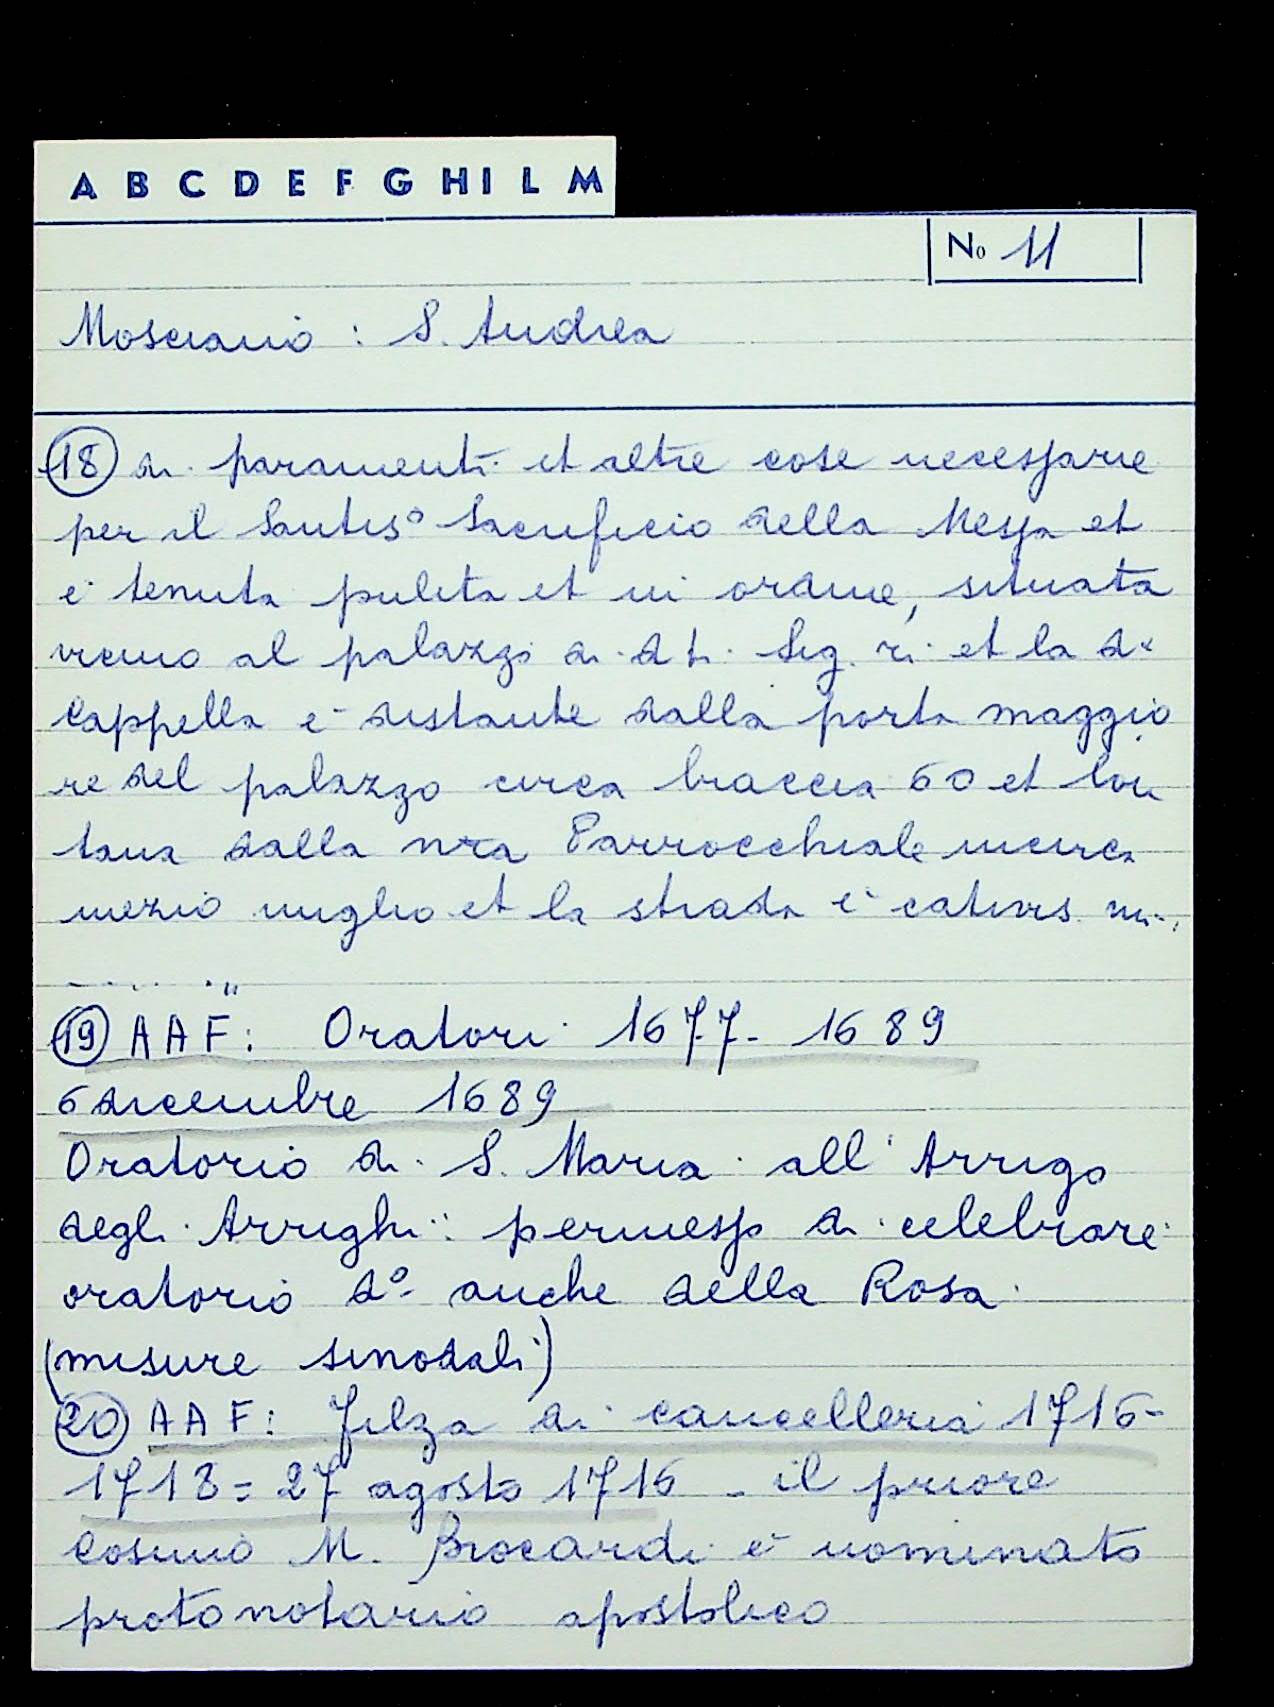 A B C D E F G H I L M
No 11
Mosciano : S. Andrea
18 di paramenti et altre cose necessarie
per il Santis° Sacrificio della Messa et
è tenuta pulita et in ordine, situata
vicino al palazzo di dti Sig.ri et la da
Cappella è distante dalla porta maggio
re del palazzo circa braccia 60 et lon
tana dalla nra Parrocchiale incirca
mezzo miglio et la strada è cativis mi..
.......... "
19 AAF: Oratori 1677- 1689
6 dicembre 1689
Oratorio di S. Maria all'Arrigo
degli Arrighi: permesso di celebrare
oratorio d° anche della Rosa
(misure sinodali)
20 AAF: Filza di cancelleria 1716-
1718 = 27 agosto 1716 - il priore
Cosimo M. Brocardi è nominato
protonotario apostolico